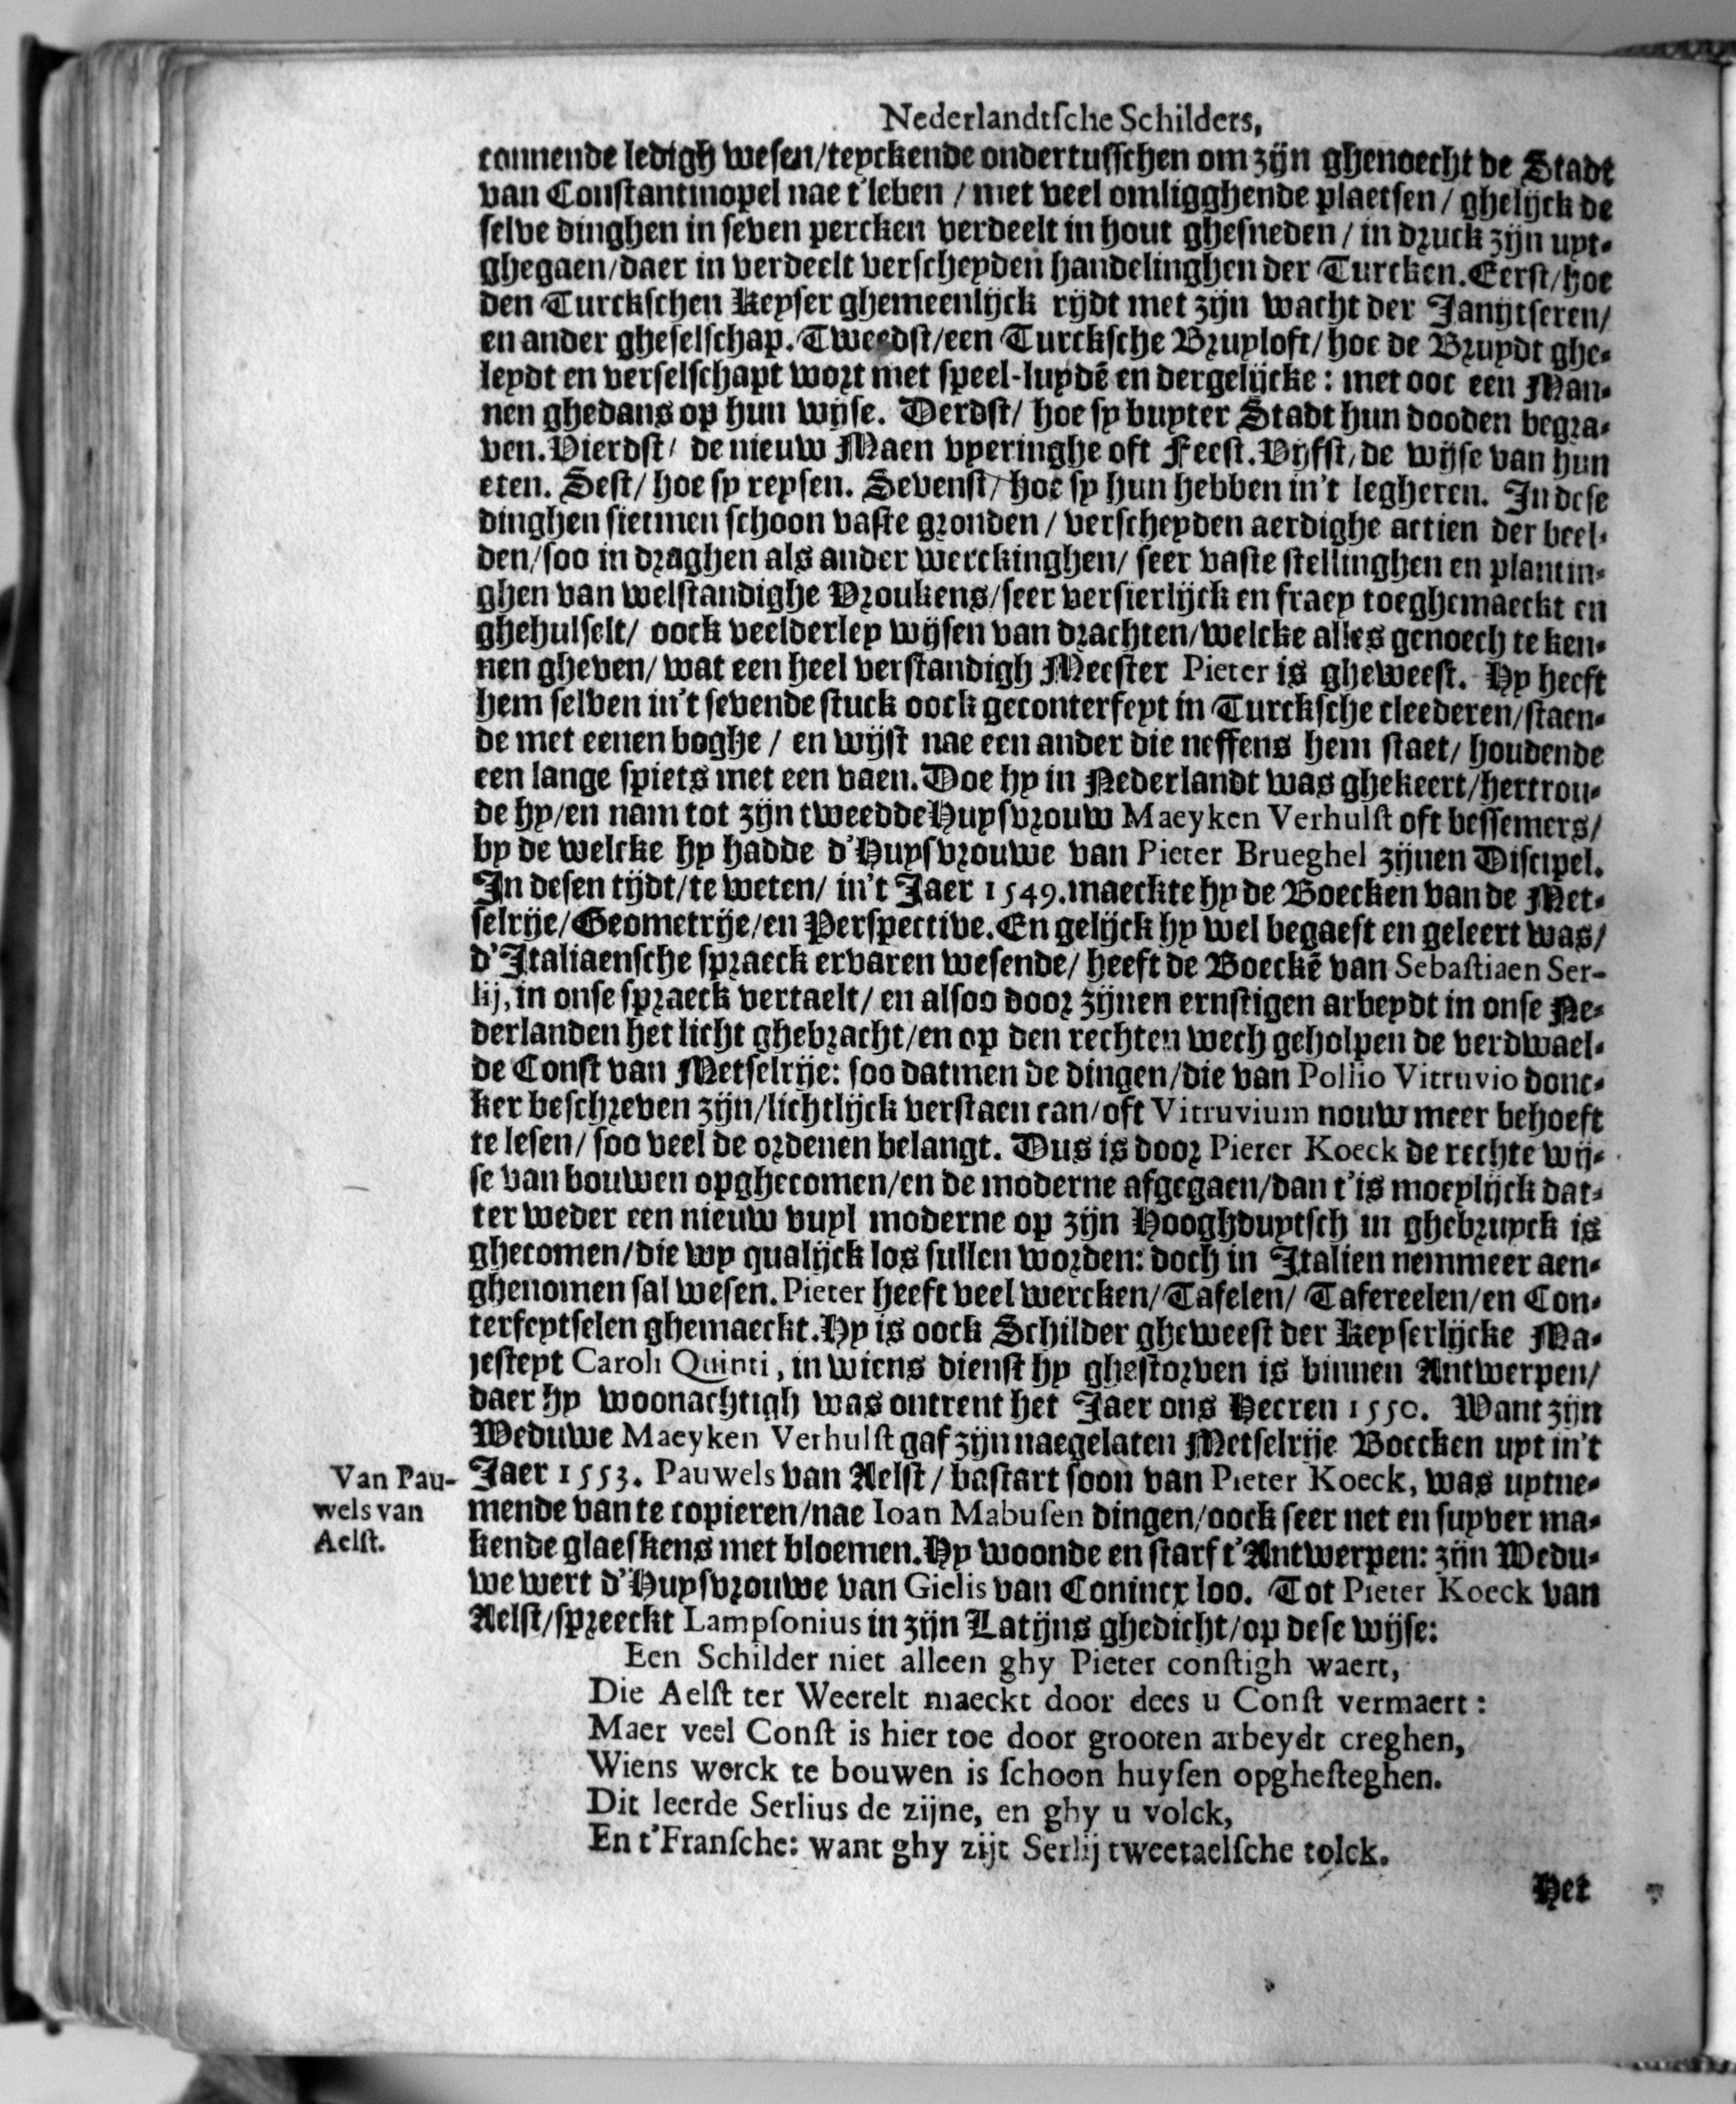 Nederlandtſche Schilders,
connende ledigh wesen/teyckende ondertusschen om zijn ghenoecht de Stadt
van Constantinopel nae t'leben / met veel omligghende plaetsen / ghelijck de
selve dinghen in seven percken verdeelt in hout ghesneden / in druck zijn uyt-
ghegaen/daer in verdeelt verscheyden handelinghen der Turcken. Eerst/hoe
den Turckschen Keyser ghemeenlijck rijdt met zijn wacht der Janijtseren/
en ander gheselschap. Tweedst/een Turcksche Bruyloft/hoe de Bruydt ghe-
leydt en verselschapt wort met speel-luydē en dergelijcke: met ooc een Man-
nen ghedans op hun wijse. Derdst/ hoe sy buyter Stadt hun dooden begra-
ven. Vierdst/ de nieuw Maen vyeringhe oft Feest. Vijfst/de wijse van hun
eten. Sest/ hoe sy reysen. Sevenst/hoe sy hun hebben in't legheren. In dese
dinghen sietmen schoon vaste gronden / verscheyden aerdighe actien der beel-
den/soo in draghen als ander werckinghen/ seer vaste stellinghen en plantin-
ghen van welstandighe Vroukens/seer versierlijck en fraey toeghemaeckt en
ghehulselt/ oock veelderley wijsen van drachten/welcke alles genoech te ken-
nen gheven/ wat een heel verstandigh Meester Pieter is gheweest. Hy heeft
hem selven in't sevende stuck oock geconterfeyt in Turcksche cleederen/staen-
de met eenen boghe / en wijst nae een ander die neffens hem staet/ houdende
een lange spiets met een vaen. Doe hy in Nederlandt was ghekeert/hertrou-
de hy/en nam tot zijn tweedde Huysvrouw Maeyken Verhulſt oft bessemers/
by de welcke hy hadde d'Huysvrouwe van Pieter Brueghel zijnen Discipel.
In desen tijdt/te weten/ in't Jaer 1549. maeckte hy de Boecken van de Met-
selrije/Geometrije/en Perspective. En gelijck hy wel begaeft en geleert was/
d'Italiaensche spraeck ervaren wesende/ heeft de Boeckē van Sebaſtiaen Ser-
lij, in onse spraeck vertaelt/ en alsoo door zijnen ernstigen arbeydt in onse Ne-
derlanden het licht ghebracht/en op den rechten wech geholpen de verdwael-
de Const van Metselrije: soo datmen de dingen/die van Pollio Vitruvio donc-
ker beschreven zijn/lichtlijck verstaen can/oft Vitruvium nouw meer behoeft
te lesen/ soo veel de ordenen belangt. Dus is door Pieter Koeck de rechte wij-
se van bouwen opghecomen/en de moderne afgegaen/dan t'is moeylijck dat-
ter weder een nieuw vuyl moderne op zijn Hooghduytsch in ghebruyck is
ghecomen/die wy qualijck los sullen worden: doch in Italien nemmeer aen-
ghenomen sal wesen. Pieter heeft veel wercken/Tafelen/ Tafereelen/en Con-
terfeytselen ghemaeckt. Hy is oock Schilder gheweest der Keyserlijcke Ma-
jesteyt Caroli Quinti, in wiens dienst hy ghestorven is binnen Antwerpen/
daer hy woonachtigh was ontrent het Jaer ons Heeren 1550. Want zijn
Weduwe Maeyken Verhulſt gaf zijn naegelaten Metselrije Boecken uyt in't
Jaer 1553. Pauwels van Aelst / bastart soon van Pieter Koeck, was uytne-
Van Pau-
wels van
Aelſt.
mende van te copieren/nae Ioan Mabuſen dingen/oock seer net en suyver ma-
kende glaeskens met bloemen. Hy woonde en starf t'Antwerpen: zijn Wedu-
we wert d'Huysvrouwe van Gielis van Conincx loo. Tot Pieter Koeck van
Aelst/spreeckt Lampſonius in zijn Latijns ghedicht/op dese wijse:
Een Schilder niet alleen ghy Pieter conſtigh waert,
Die Aelſt ter Weerelt maeckt door dees u Conſt vermaert :
Maer veel Conſt is hier toe door grooten arbeydt creghen,
Wiens werck te bouwen is ſchoon huyſen opgheſteghen.
Dit leerde Serlius de zijne, en ghy u volck,
En t'Franſche: want ghy zijt Serlij tweetaelſche tolck.
Het